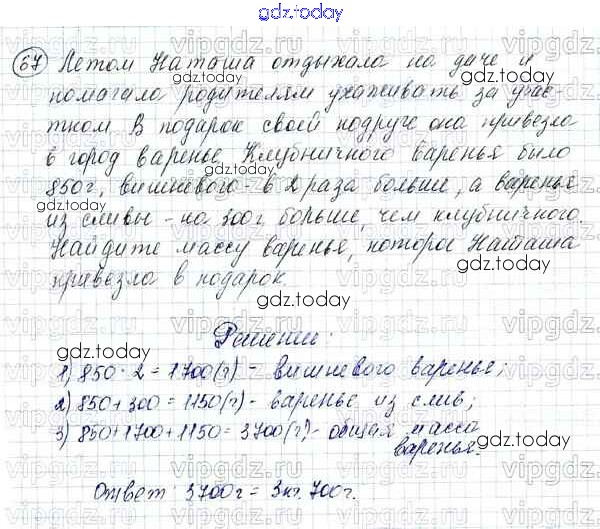 gdz.today
67 Летом Наташа отдыхала на даче и
помагала родителям ухаживать за учас-
тком. В подарок своей подруге она привезла
в город варенье. Клубничного варенья было
850г, вишневого - в 2 раза больше, а варенье
из сливы - на 300г больше, чем клубничного.
Найдите массу варенья, которое Наташа
привезла в подарок.
Решение:
1) 850 · 2 = 1700(г) - вишневого варенье;
2) 850 + 300 = 1150(г) - варенье из слив;
3) 850 + 1700 + 1150 = 3700(г) - общая масса
варенья.
Ответ: 3700г = 3кг. 700г.
gdz.today